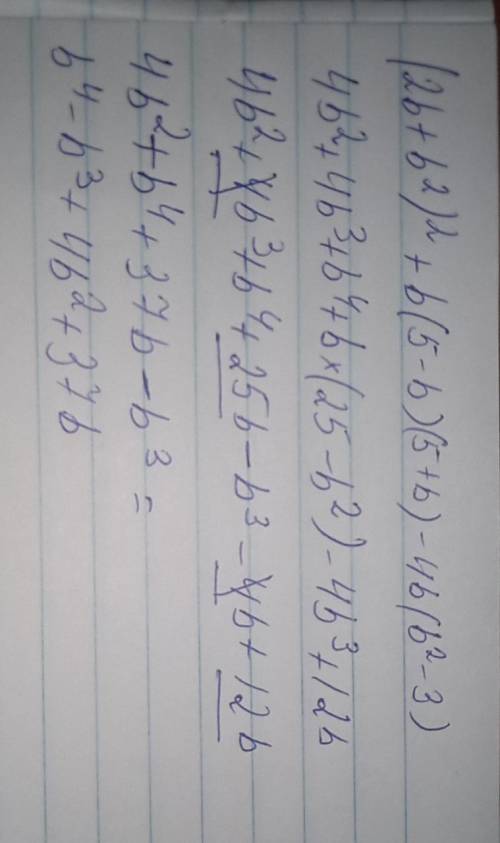 (2b+b²)²+b(5-b)(5+b)-4b(b²-3)
4b²+4b³+b⁴+b×(25-b²)-4b³+12b
4b²+4b³+b⁴+25b-b³-4b+12b
4b²+b⁴+37b-b³=
b⁴-b³+4b²+37b